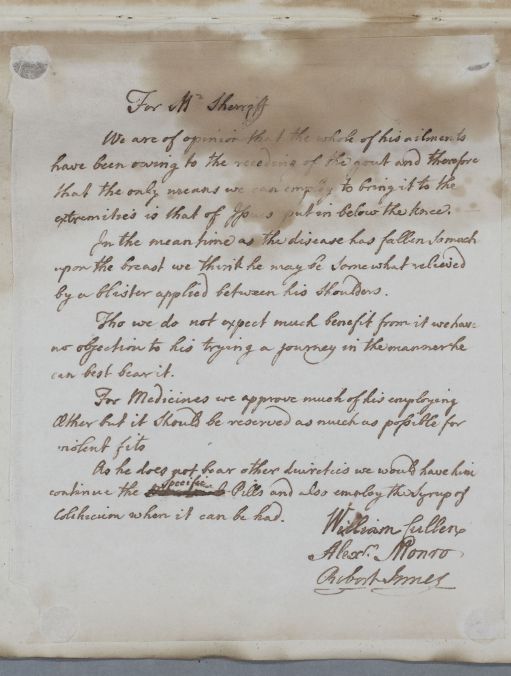 For Mr Sherriff
We are of opinion that the whole of his ailments
have been owing to the receding of the gout and therefore
that the only means we can employ to bring it to the
extremities is that of Issues put in below the knee.
In the mean time as the disease has fallen so much
upon the breast we think he may be somewhat relieved
by a blister applied between his Shoulders.
Tho we do not expect much benefit from it we have
no objection to his trying a journey in the manner he
can best bear it.
For Medicines we approve much of his employing
Æther but it should be reserved as much as possible for
violent fits
As he does not bear other diuretics we would have him
specific
continue the Pills and also employ the Syrup of
Colchicum when it can be had.
William Cullen
Alexr. Monro
Robert Innes